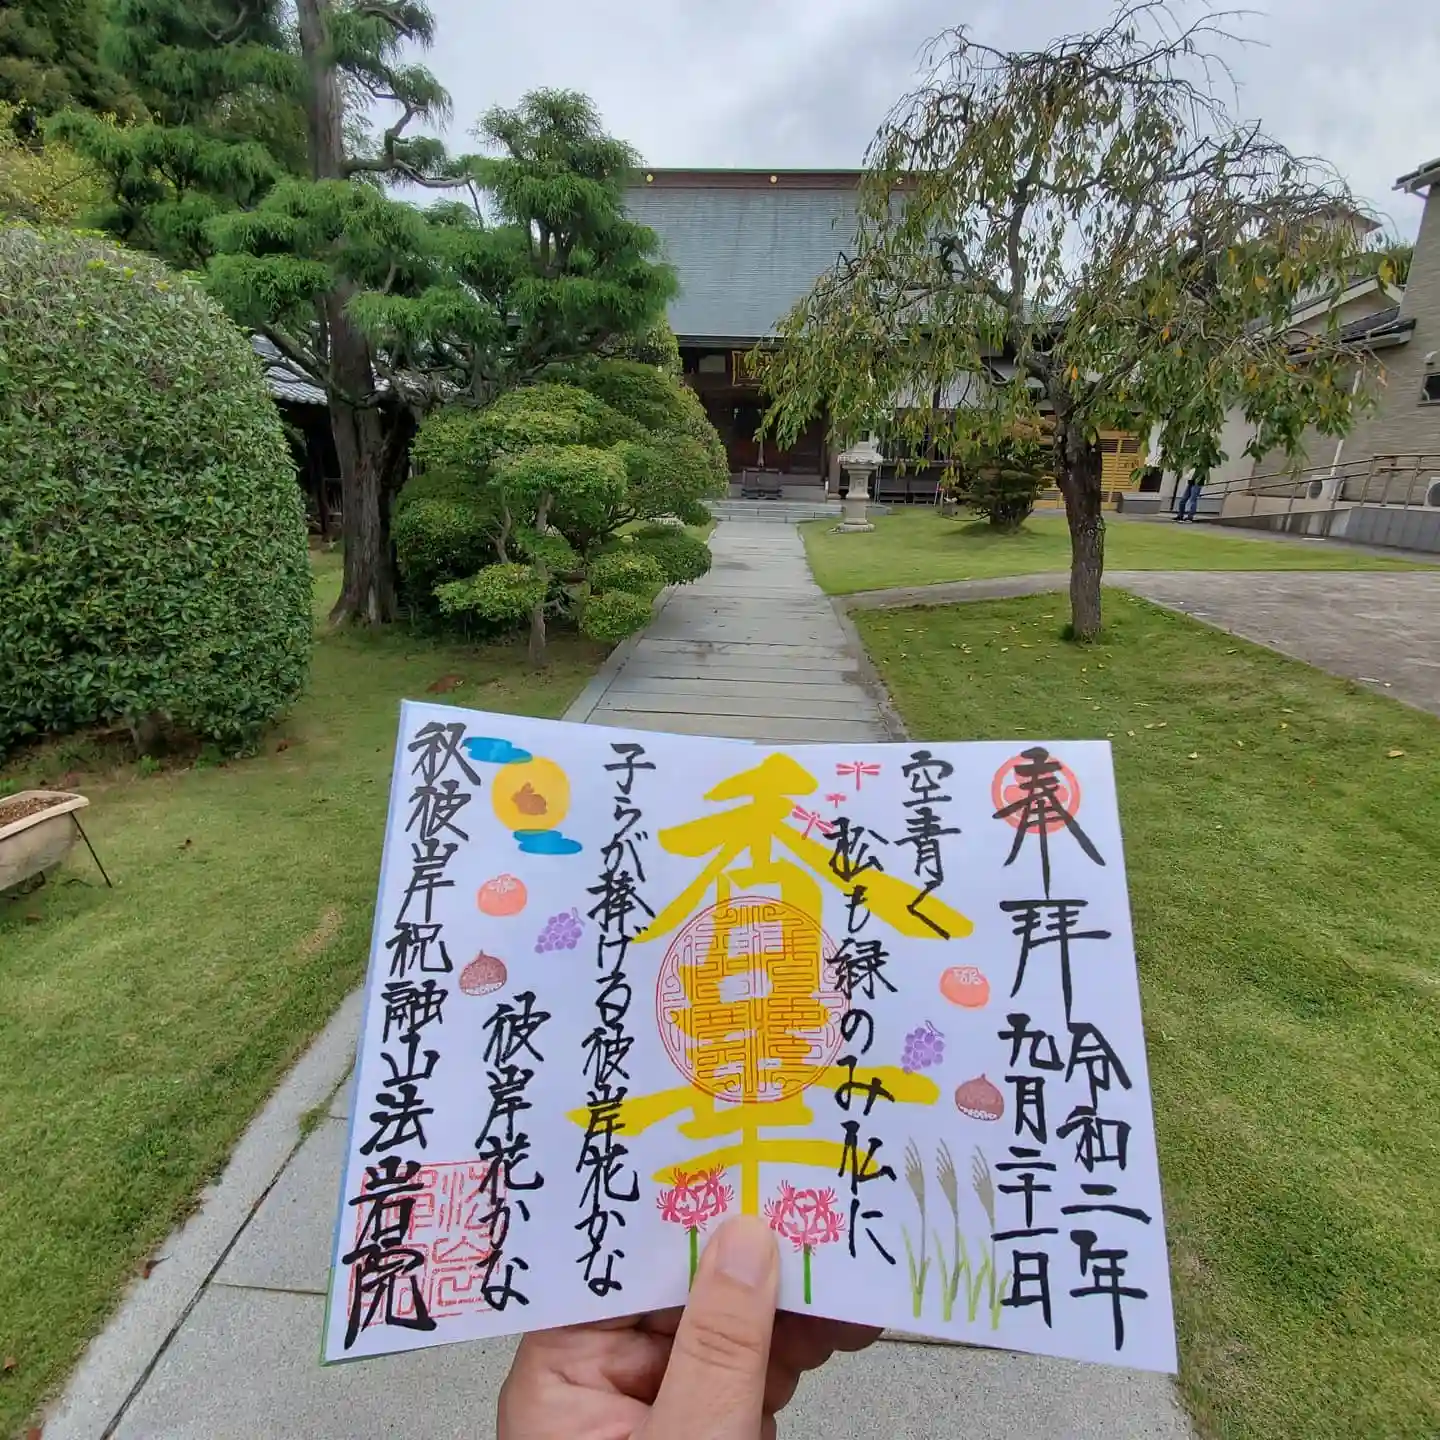 奉拝
令和二年
九月二十一日
空青く
松も緑のみ仏に
香華
子らが捧げる彼岸花かな
彼岸花かな
秋彼岸
祝融山法岩院